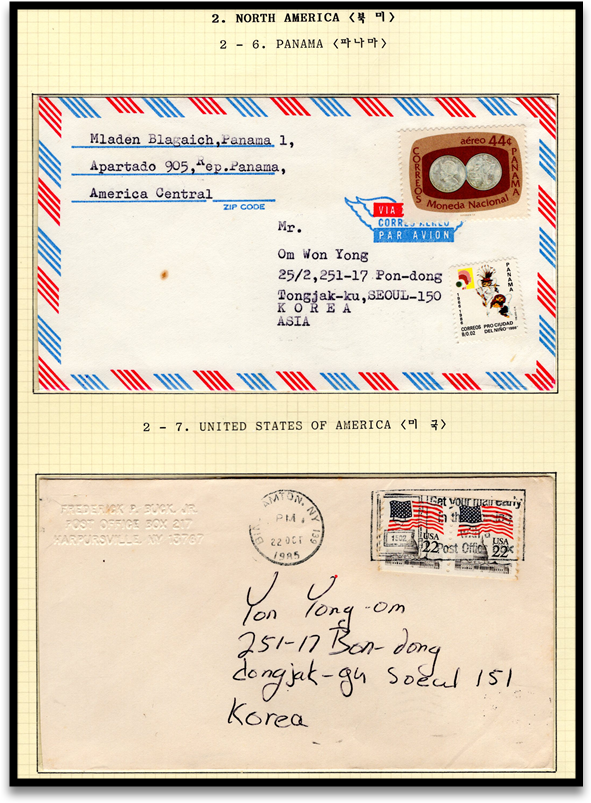 2. NORTH AMERICA 〈북 미〉
2 - 6. PANAMA 〈파나마〉
Mladen Blagaich,Panama 1,
Apartado 905,Rep.Panama,
America Central
ZIP CODE
aéreo 44¢
CORREOS
PANAMA
Moneda Nacional
VIA
CORREO AEREO
PAR AVION
Mr.
Om Won Yong
25/2,251-17 Pon-dong
Tongjak-ku,SEOUL-150
K O R E A
ASIA
PANAMA
CORREOS PRO CIUDAD
B/0.02 DEL NIÑO
2 - 7. UNITED STATES OF AMERICA 〈미 국〉
FREDERICK P. BUCK, JR.
POST OFFICE BOX 217
HARPURSVILLE, NY 13787
AMTON, NY 139
PM
22 OCT
1985
Get your mail early
in the
Post Office
USA
22
USA
22
Yon Yong-om
251-17 Bon-dong
dongjak-gu Soeul 151
Korea